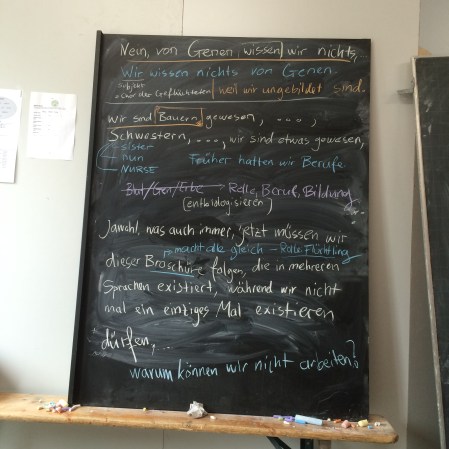 Nein, von Genen wissen wir nichts,
Wir wissen nichts von Genen
subjekt
= Chor der Geflüchteten weil wir ungebildet sind.
Wir sind Bauern gewesen, ...,
Schwestern, ..., wir sind etwas gewesen,
sister
nun
NURSE
Früher hatten wir Berufe
Blut/Gen/Erbe → Rolle, Beruf, Bildung
(entbiologisieren)
Jawohl, was auch immer, jetzt müssen wir
macht alle gleich – Rolle Flüchtling
dieser Broschüre folgen, die in mehreren
Sprachen existiert, während wir nicht
mal ein einziges Mal existieren
dürfen,...
warum können wir nicht arbeiten?